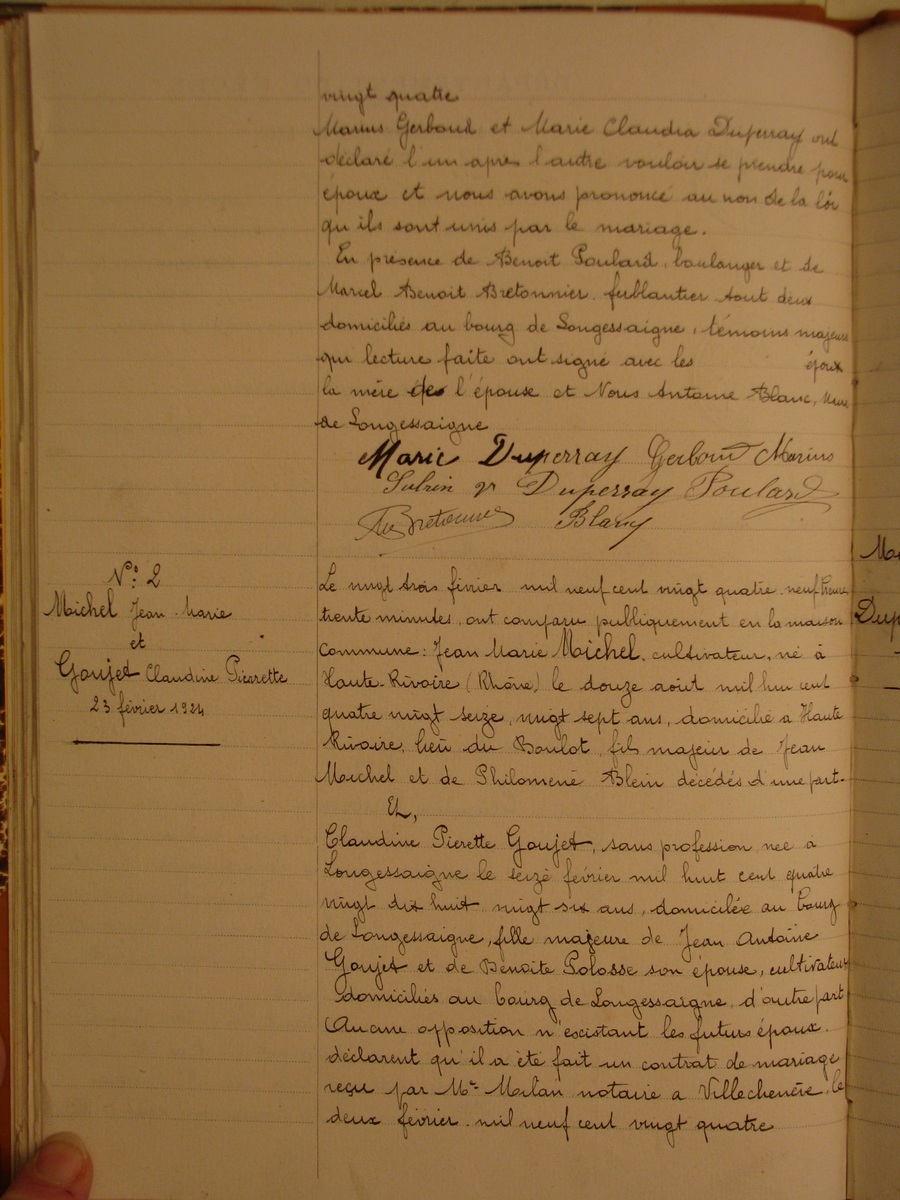 vingt quatre
Marius Gerboud et Marie Claudia Duperray ont
déclaré l'un après l'autre vouloir se prendre pour
époux et nous avons prononcé au nom de la loi
qu'ils sont unis par le mariage.
En présence de Benoit Poulard, boulanger et de
Marcel Benoit Bretonnier, ferblantier tout deux
domiciliés au bourg de Longessaigne, témoins majeurs
qui lecture faite ont signé avec les époux
la mère de l'épouse et Nous Antoine Blanc, Maire
de Longessaigne
Marie Duperray Gerboud Marius
Duperray Poulard
Bretonnier Blanc
N° 2
Michel Jean-Marie
et
Goujet Claudine Pierrette
23 février 1924
Le vingt trois février mil neuf cent vingt quatre neuf heures
trente minutes, ont comparu publiquement en la maison
commune: Jean Marie Michel, cultivateur, né à
Haute-Rivoire (Rhône) le douze août mil huit cent
quatre vingt seize, vingt sept ans, domicilié a Haute
Rivoire, lieu du Boulot, fils majeur de Jean
Michel et de Philomene Blein décédés d'une part-
Et,
Claudine Pierette Goujet, sans profession née à
Longessaigne le seize février mil huit cent quatre
vingt dix huit vingt six ans, domiciliée au bourg
de Longessaigne, fille majeure de Jean Antoine
Goujet et de Benoite Polosse son épouse, cultivateurs
domiciliés au bourg de Longessaigne, d'autre part
Aucune opposition n'existant les futurs époux.
déclarent qu'il a été fait un contrat de mariage
reçu par Me Milan notaire a Villechenève, le
deux février mil neuf cent vingt quatre